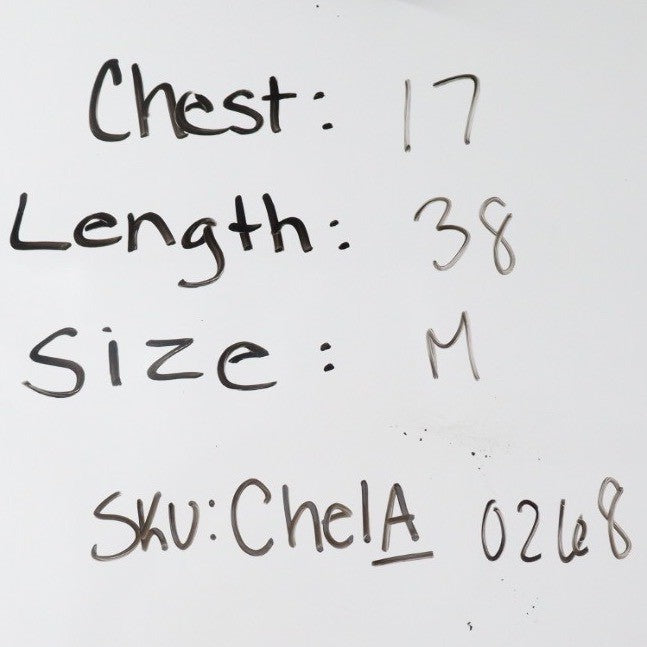 Chest: 17
Length: 38
Size: M
SKU: ChelA 0268